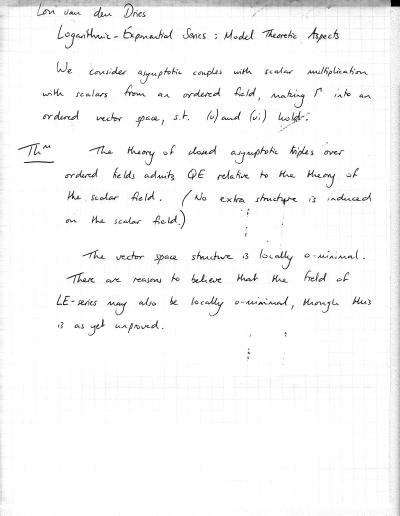 Lou van den Dries
Logarithmic-Exponential Series : Model Theoretic Aspects
We consider asymptotic couples with scalar multiplication
with scalars from an ordered field, making Γ into an
ordered vector space, s.t. (v) and (vi) hold.
Thm The theory of closed asymptotic triples over
ordered fields admits QE relative to the theory of
the scalar field. (No extra structure is induced
on the scalar field.)
The vector space structure is locally o-minimal.
There are reasons to believe that the field of
LE-series may also be locally o-minimal, though this
is as yet unproved.